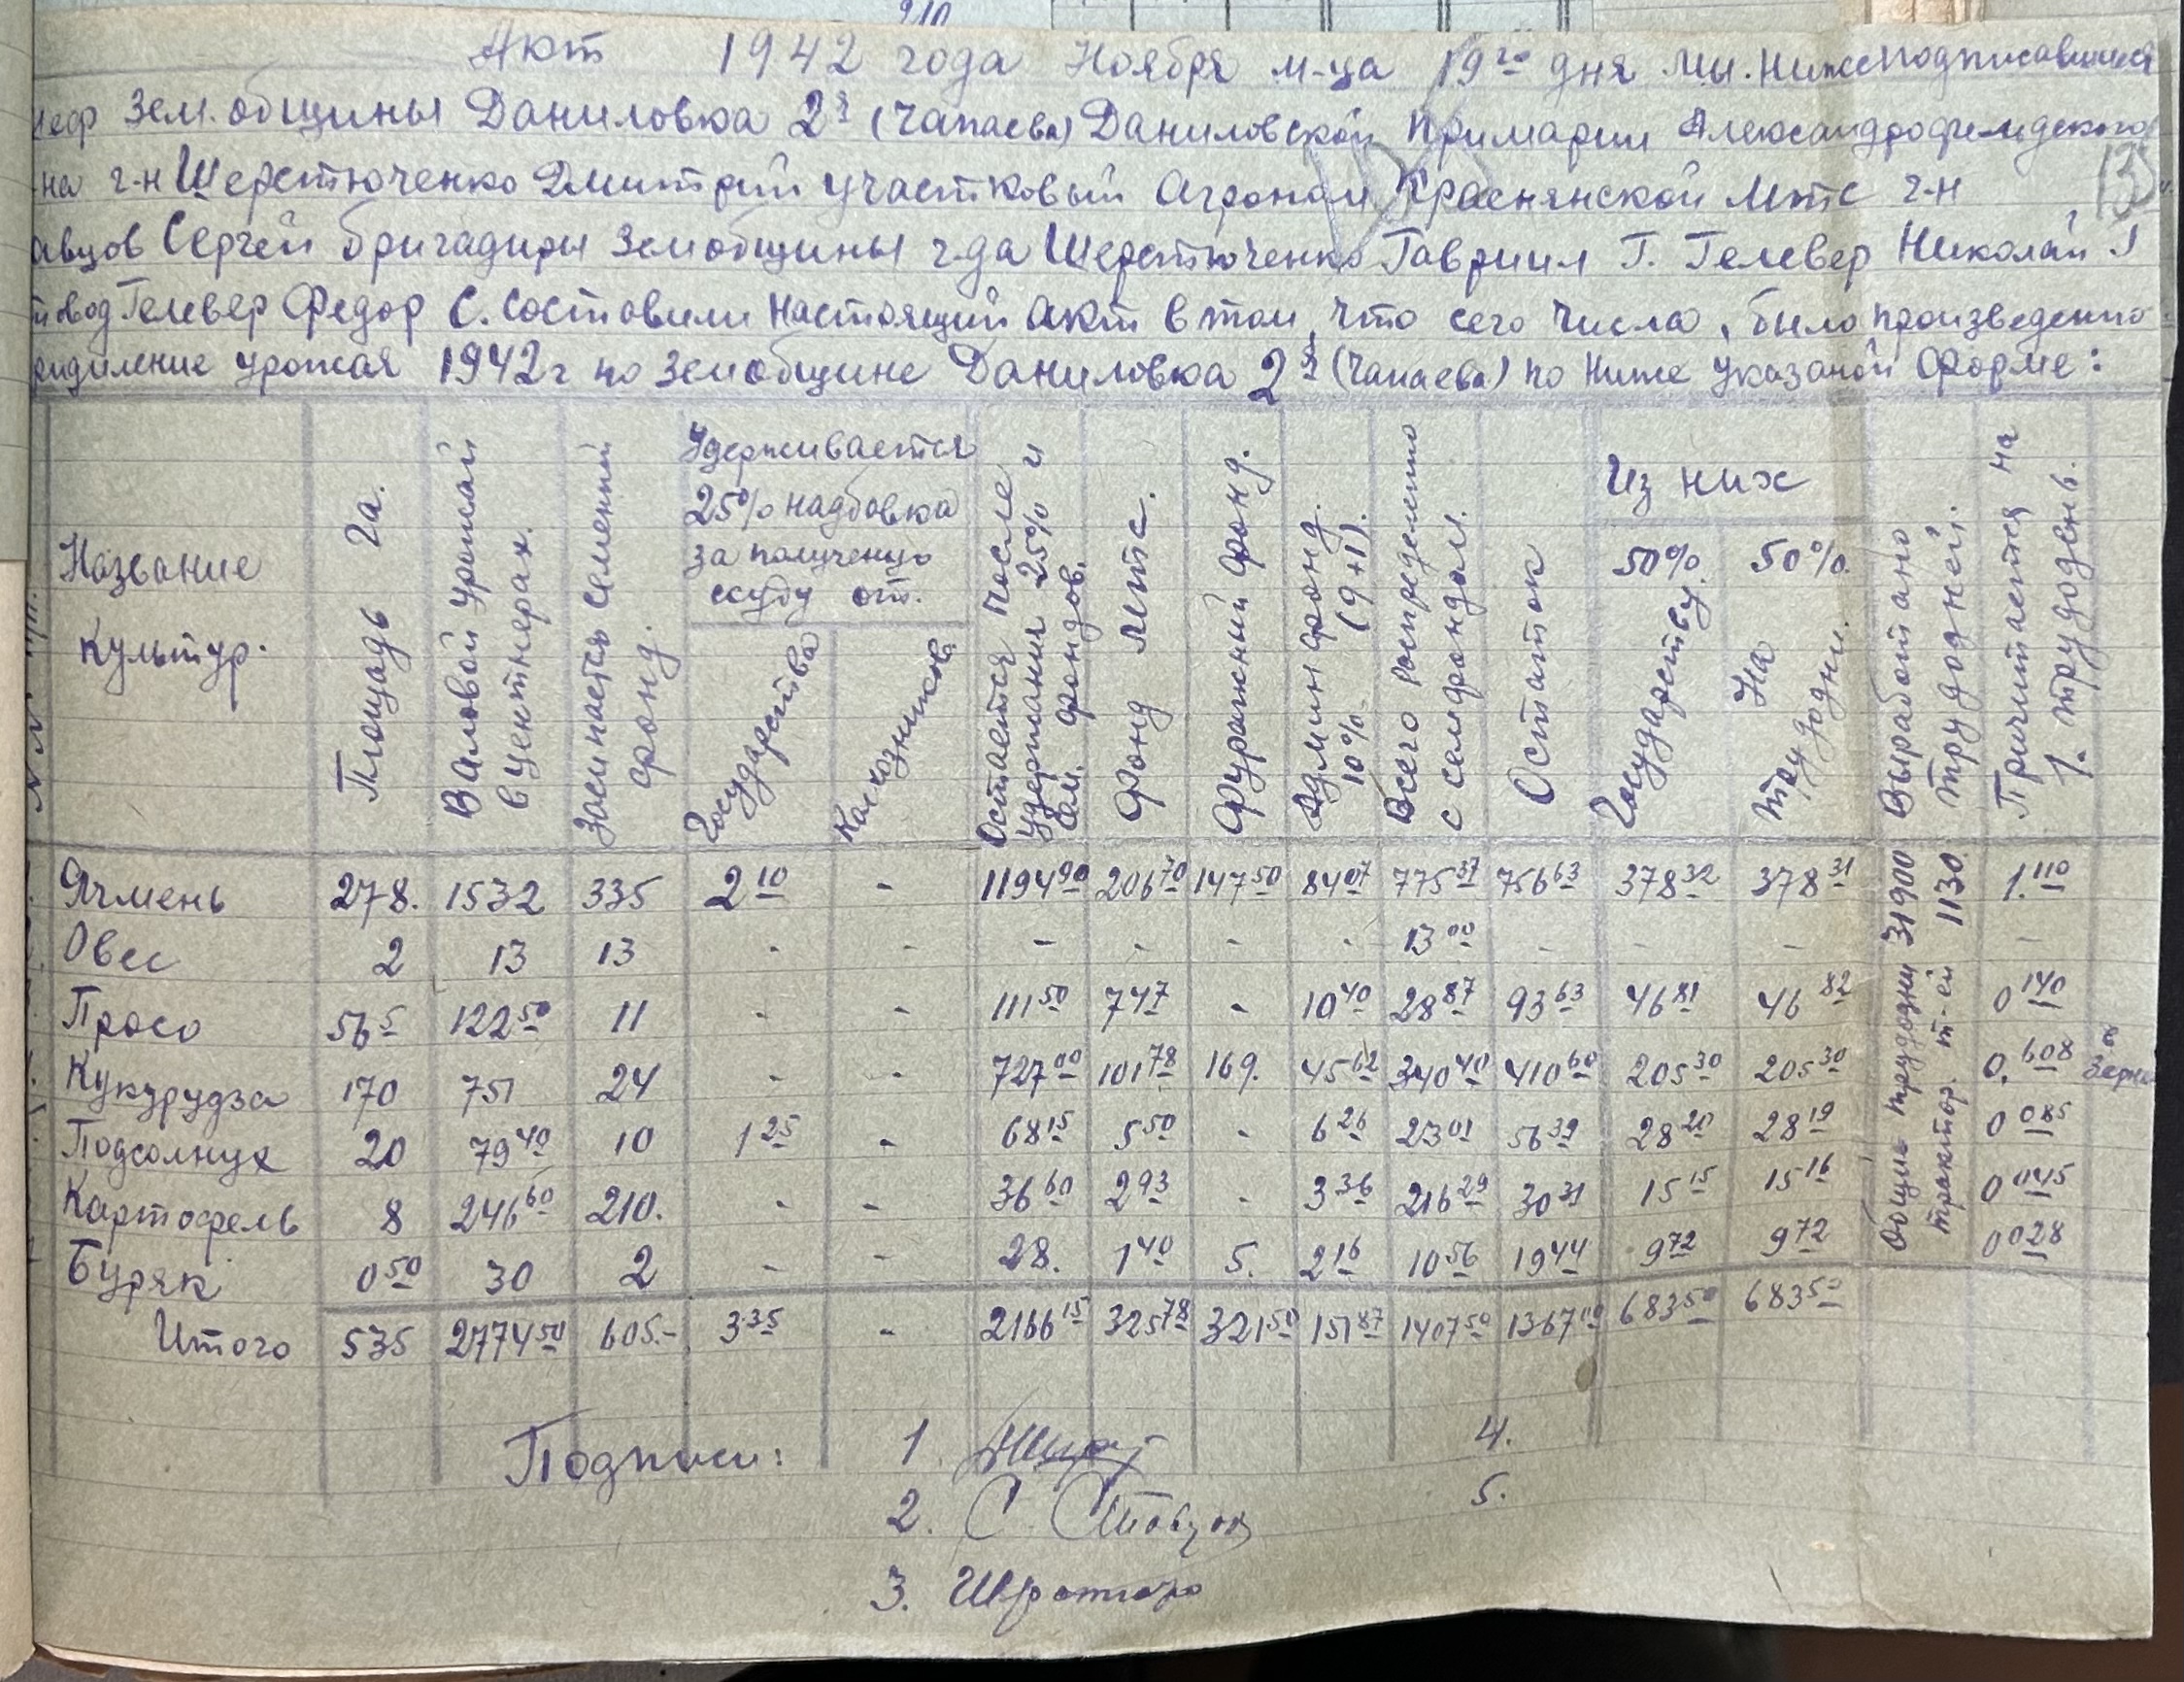 Акт 1942 года Ноября м-ца 19го дня мы. Нижеподписавшиеся
Зем. общины Даниловка 2я (Чапаева) Даниловской Примарии Александрофельдского
на г-н Шерстюченко Дмитрий участковый Агроном Краснянской Мтс г-н
13
авцов Сергей бригадиры Земобщины г-да Шерстюченко Гавриил Г. Гелевер Николай Г
товод Гелевер Федор С. составили настоящий акт в том, что сего числа, было произведенно
ридиление урожая 1942 г по Земобщине Даниловка 2я (Чапаева) по Ниже указаной Форме:
Название Культур.
Площадь Га.
Валовой урожай в центнерах.
Засипается Семенной фонд.
Удерживается 25% надбовка за полученую ссуду от.
Государства
Колхозников
Остается После удержания 25% и сем. фондов.
Фонд Мтс.
Фуражний фонд.
Админфонд. 10% (9+11).
Всего роспределенно с семфондом.
Остаток
Из них
50% Государству.
50% На трудодни.
Выработано трудодней.
Причитается на 1. трудодень.
Ячмень 278. 1532 335 2 10 - 1194 90 206 70 147 50 84 07 775 37 756 63 378 32 378 31 1. 110
Овес 2 13 13 - - - - - - 13 00 - - - -
Просо 56 5 122 50 11 - - 111 50 7 47 - 10 40 28 87 93 63 46 81 46 82 0 140
Кукурудза 170 751 24 - - 727 00 101 78 169. 45 62 340 40 410 60 205 30 205 30 0. 608 в Зерне
Подсолнух 20 79 40 10 1 25 - 68 15 5 50 - 6 26 23 01 56 39 28 20 28 19 0 085
Картофель 8 246 60 210. - - 36 60 2 93 - 3 36 216 29 30 31 15 15 15 16 0 045
Буряк 0 50 30 2 - - 28. 1 40 5. 2 16 10 56 19 44 9 72 9 72 0 028
Общие трудодни 31900
трактор. т-ей 1130
Итого 535 2774 50 605.- 3 35 - 2166 15 325 78 321 50 151 87 1407 50 1367 00 683 50 683 50
Подписи: 1 4.
2. С. 5.
3.